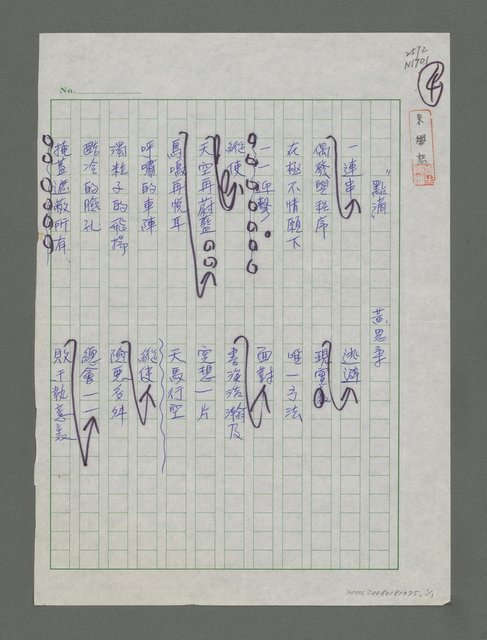 2572
N1701
No.
"點滴"
黃思章
一連串
偶發與秩序
在極不情願下
一一叩聲
縱使
天空再蔚藍
鳥鳴再悅耳
呼嘯的車陣
濁粒子的飛揚
酷冷的臉孔
掩蓋遮蔽所有
逃避
現實
唯一方法
面對
書海浩瀚及
空想一片
天馬行空
縱使
險惡多舛
總會一一
敗于執意裏
NMTL20080181375, 1/1